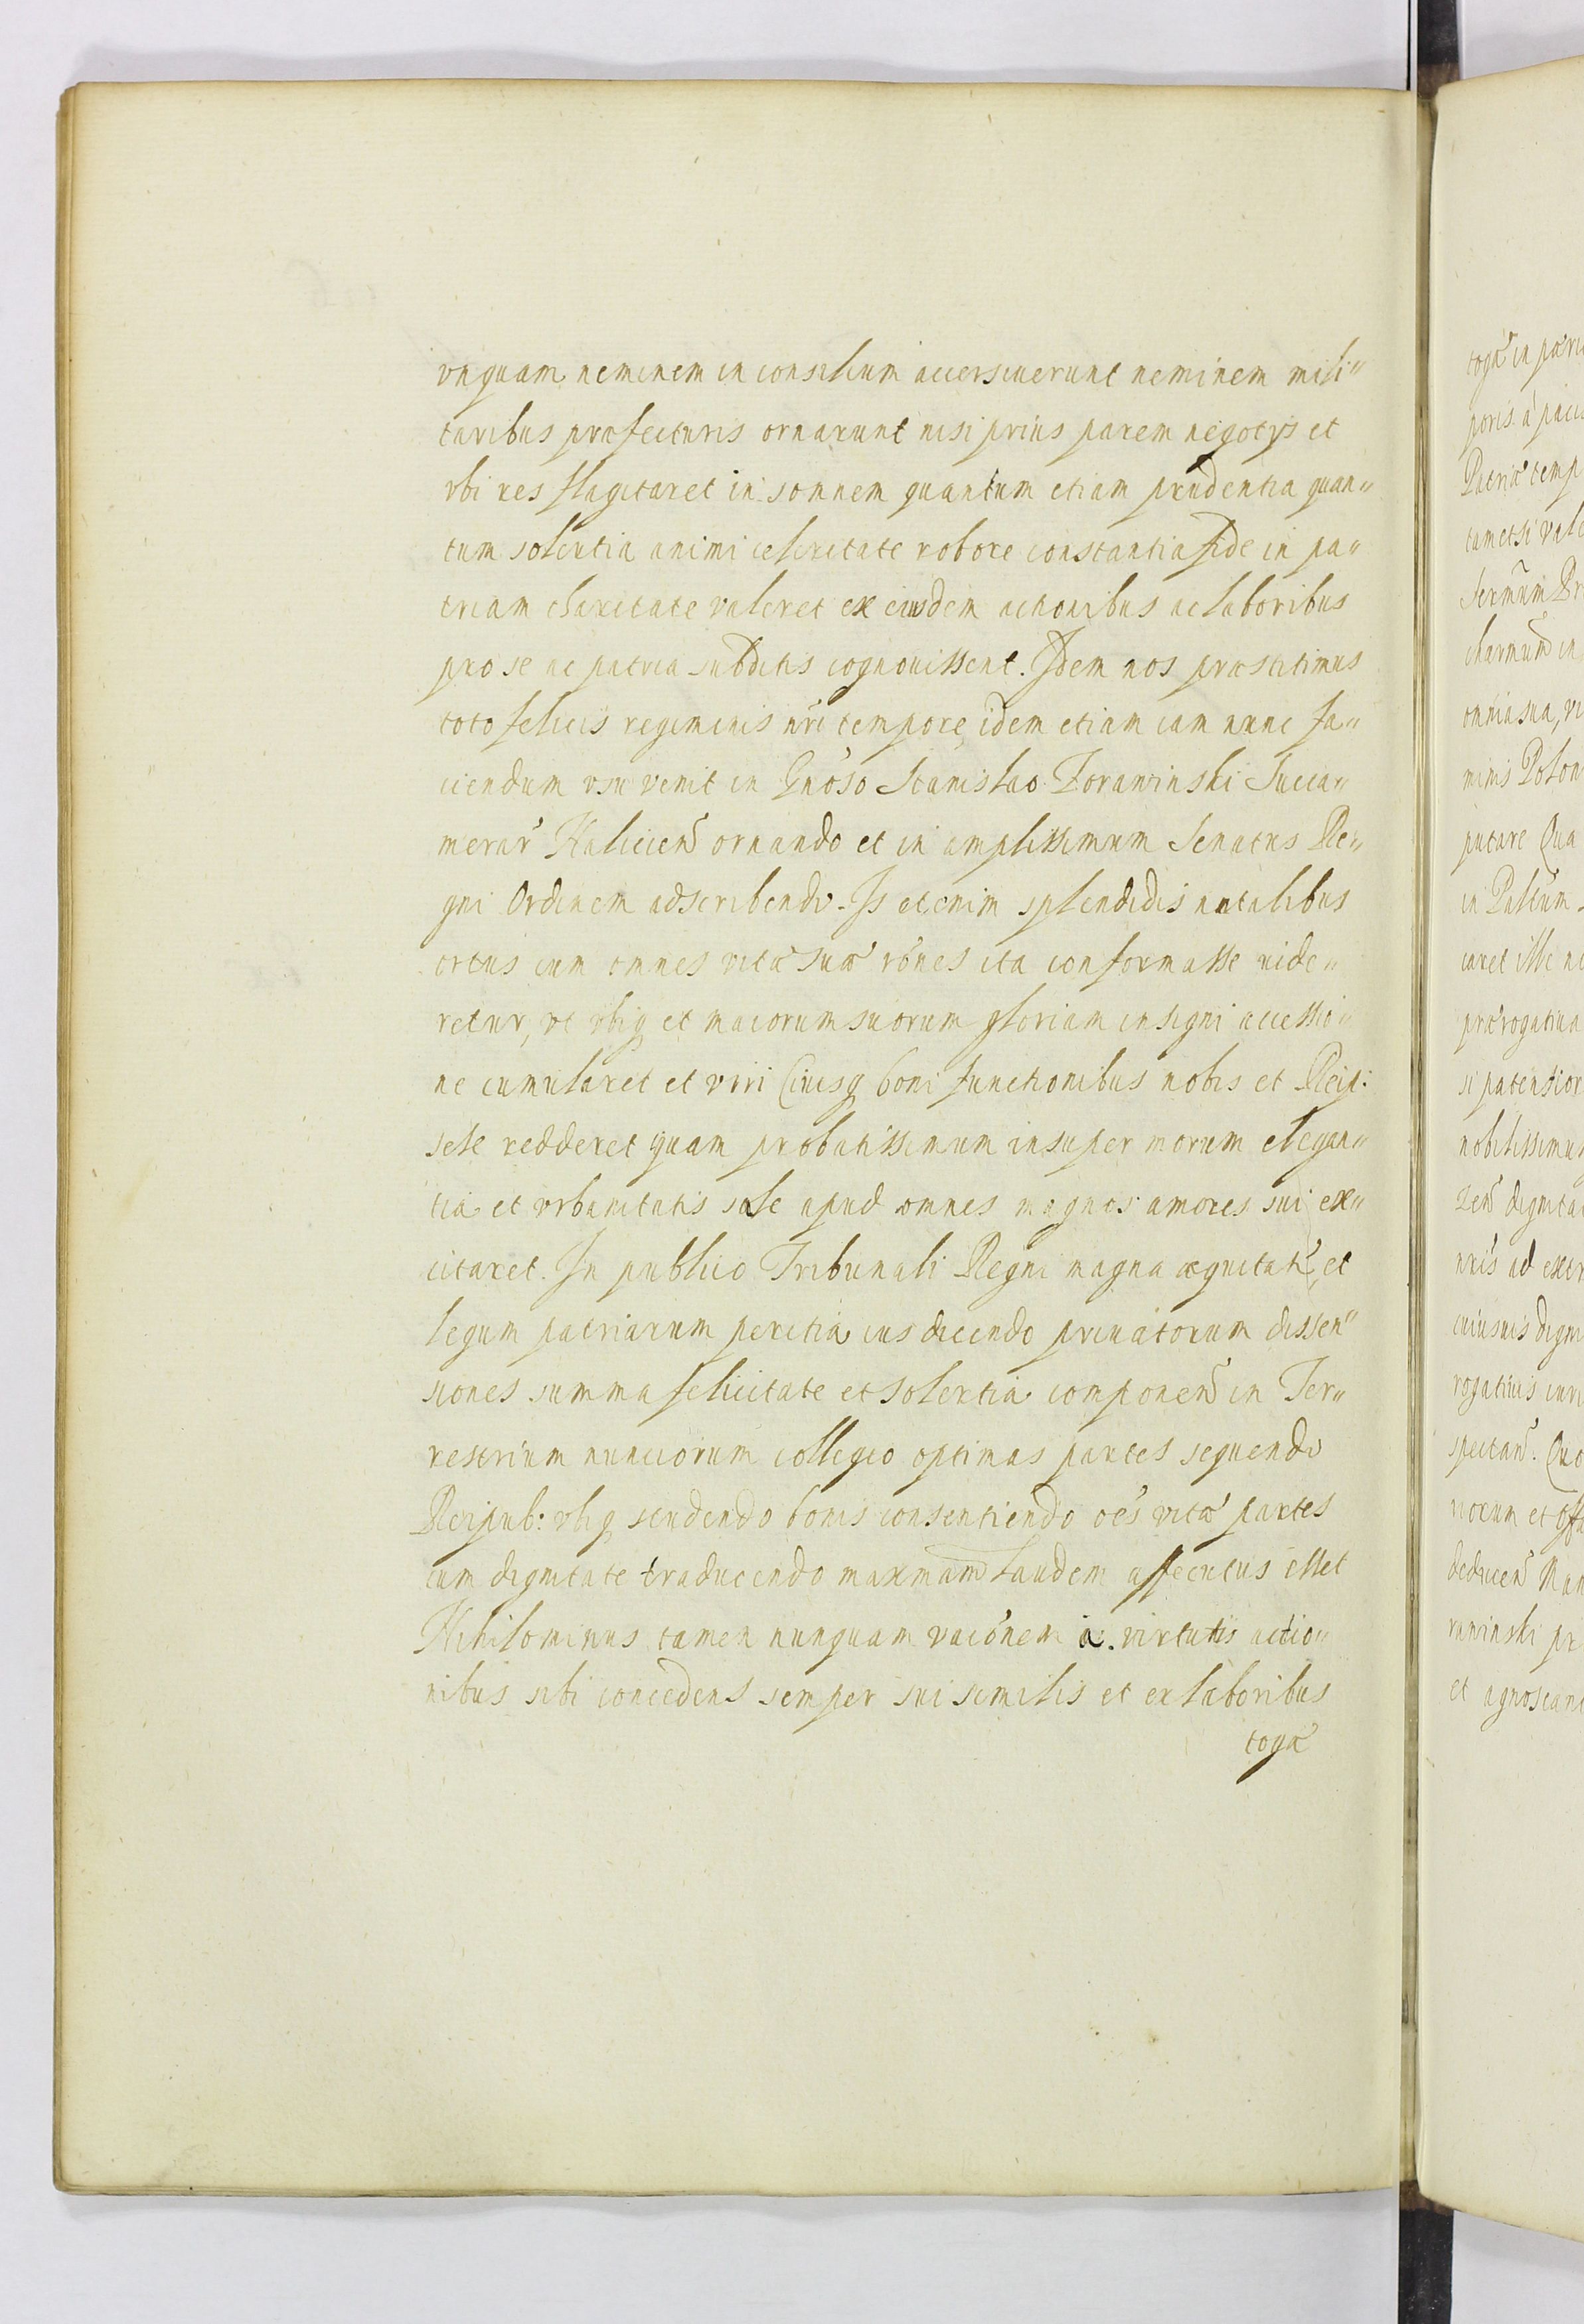 vnquam neminem in consilium acciersiuerunt neminem mili„
taribus præfecturis ornarunt nisi prius parem negotÿs et
vbi res flagitaret in somnem quantum etiam prudentia quan„
tum solertia animi celeritate robore constantia fide in pa„
triam charitate valeret ex eiusdem actionibus ac laboribus
pro se ac patria subditis cognouissent. Idem nos præstitimus
toto felicis regiminis nr̃i tempore, idem etiam iam nunc fa„
ciendum vsu venit in Gnoso Stanislao Zorawinski Succa„
merar̃ Halicien̄ ornando et in amplissimum Senatus Re„
gni Ordinem adscribendo. Is etenim splendidis natalibus
ortus cum omnes vitæ suæ rónes ita conformasse uide„
retur, vt vbiq et maiorum suorum gloriam insigni accessio„
ne cumularet et viri Ciuisq boni functionibus nobis et Reip:
sese redderet quam probatissimum insuper morum elegan„
tia et vrbanitatis sale apud omnes magnos amores sui ex„
citaret. In publico Tribunali Regni magna æquitate, et
legum patriarum peritia ius dicendo priuatorum dissen„
siones summa felicitate et solertia componen̄ in Ter„
restrium nunciorum collegio optimas partes sequendo
Reipub: vbiq studendo bonis consentiendo oēs vitæ partes
cum dignitate traducendo maxmam laudem assecutus esset
Nihilominus tamen nunquam vaciónem a virtutis actio„
nibus sibi concedens semper sui similis et ex laboribus
togæ
togæ in
poris á
Patriæ temp
tametsi vale
Sermum Pr
charmum in
omnia sua, vi
minis Polon
putare Qua
in Paltum
caret ille
prærogatiua
si patentior
nobilissimu
dignita
nris ad extr
cuiusuis digni
rogatiuis
spectan̄. Quo
norum et
deducen̄ Man
rawinski pr
et agnoscant